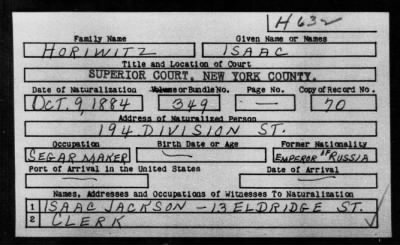 H 632
Family Name Given Name or Names
HORIWITZ ISAAC
Title and Location of Court
SUPERIOR COURT, NEW YORK COUNTY.
Date of Naturalization Volume or Bundle No. Page No. Copy of Record No.
OCT. 9, 1884 349 — 70
Address of Naturalized Person
194 DIVISION ST.
Occupation Birth Date or Age Former Nationality
SEGAR MAKER — EMPEROR OF RUSSIA
Port of Arrival in the United States Date of Arrival
Names, Addresses and Occupations of Witnesses To Naturalization
1 ISAAC JACKSON — 13 ELDRIDGE ST.
2 CLERK